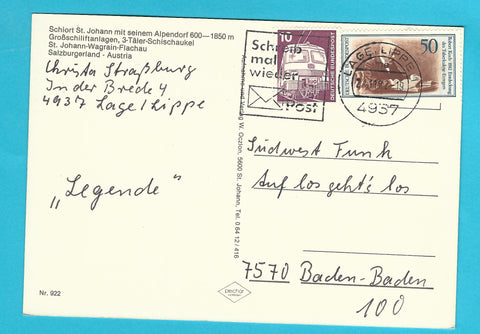 Schiort St. Johann mit seinem Alpendorf 600—1850 m
Großschiliftanlagen, 3-Täler-Schischaukel
St. Johann-Wagrain-Flachau
Salzburgerland - Austria
Christa Straßburg
In der Brede 4
4937 Lage/Lippe
„Legende”
Nr. 922
W. Oczlon, 5600 St. Johann, Tel. 0 64 12 / 416
10
DEUTSCHE BUNDESPOST
Schreib
mal
wieder
Post
50
Robert Koch 1882 Entdeckung
des Tuberkulose-Erregers
LAGE, LIPPE
4937
Südwest Funk
Auf los geht's los
7570 Baden-Baden
100